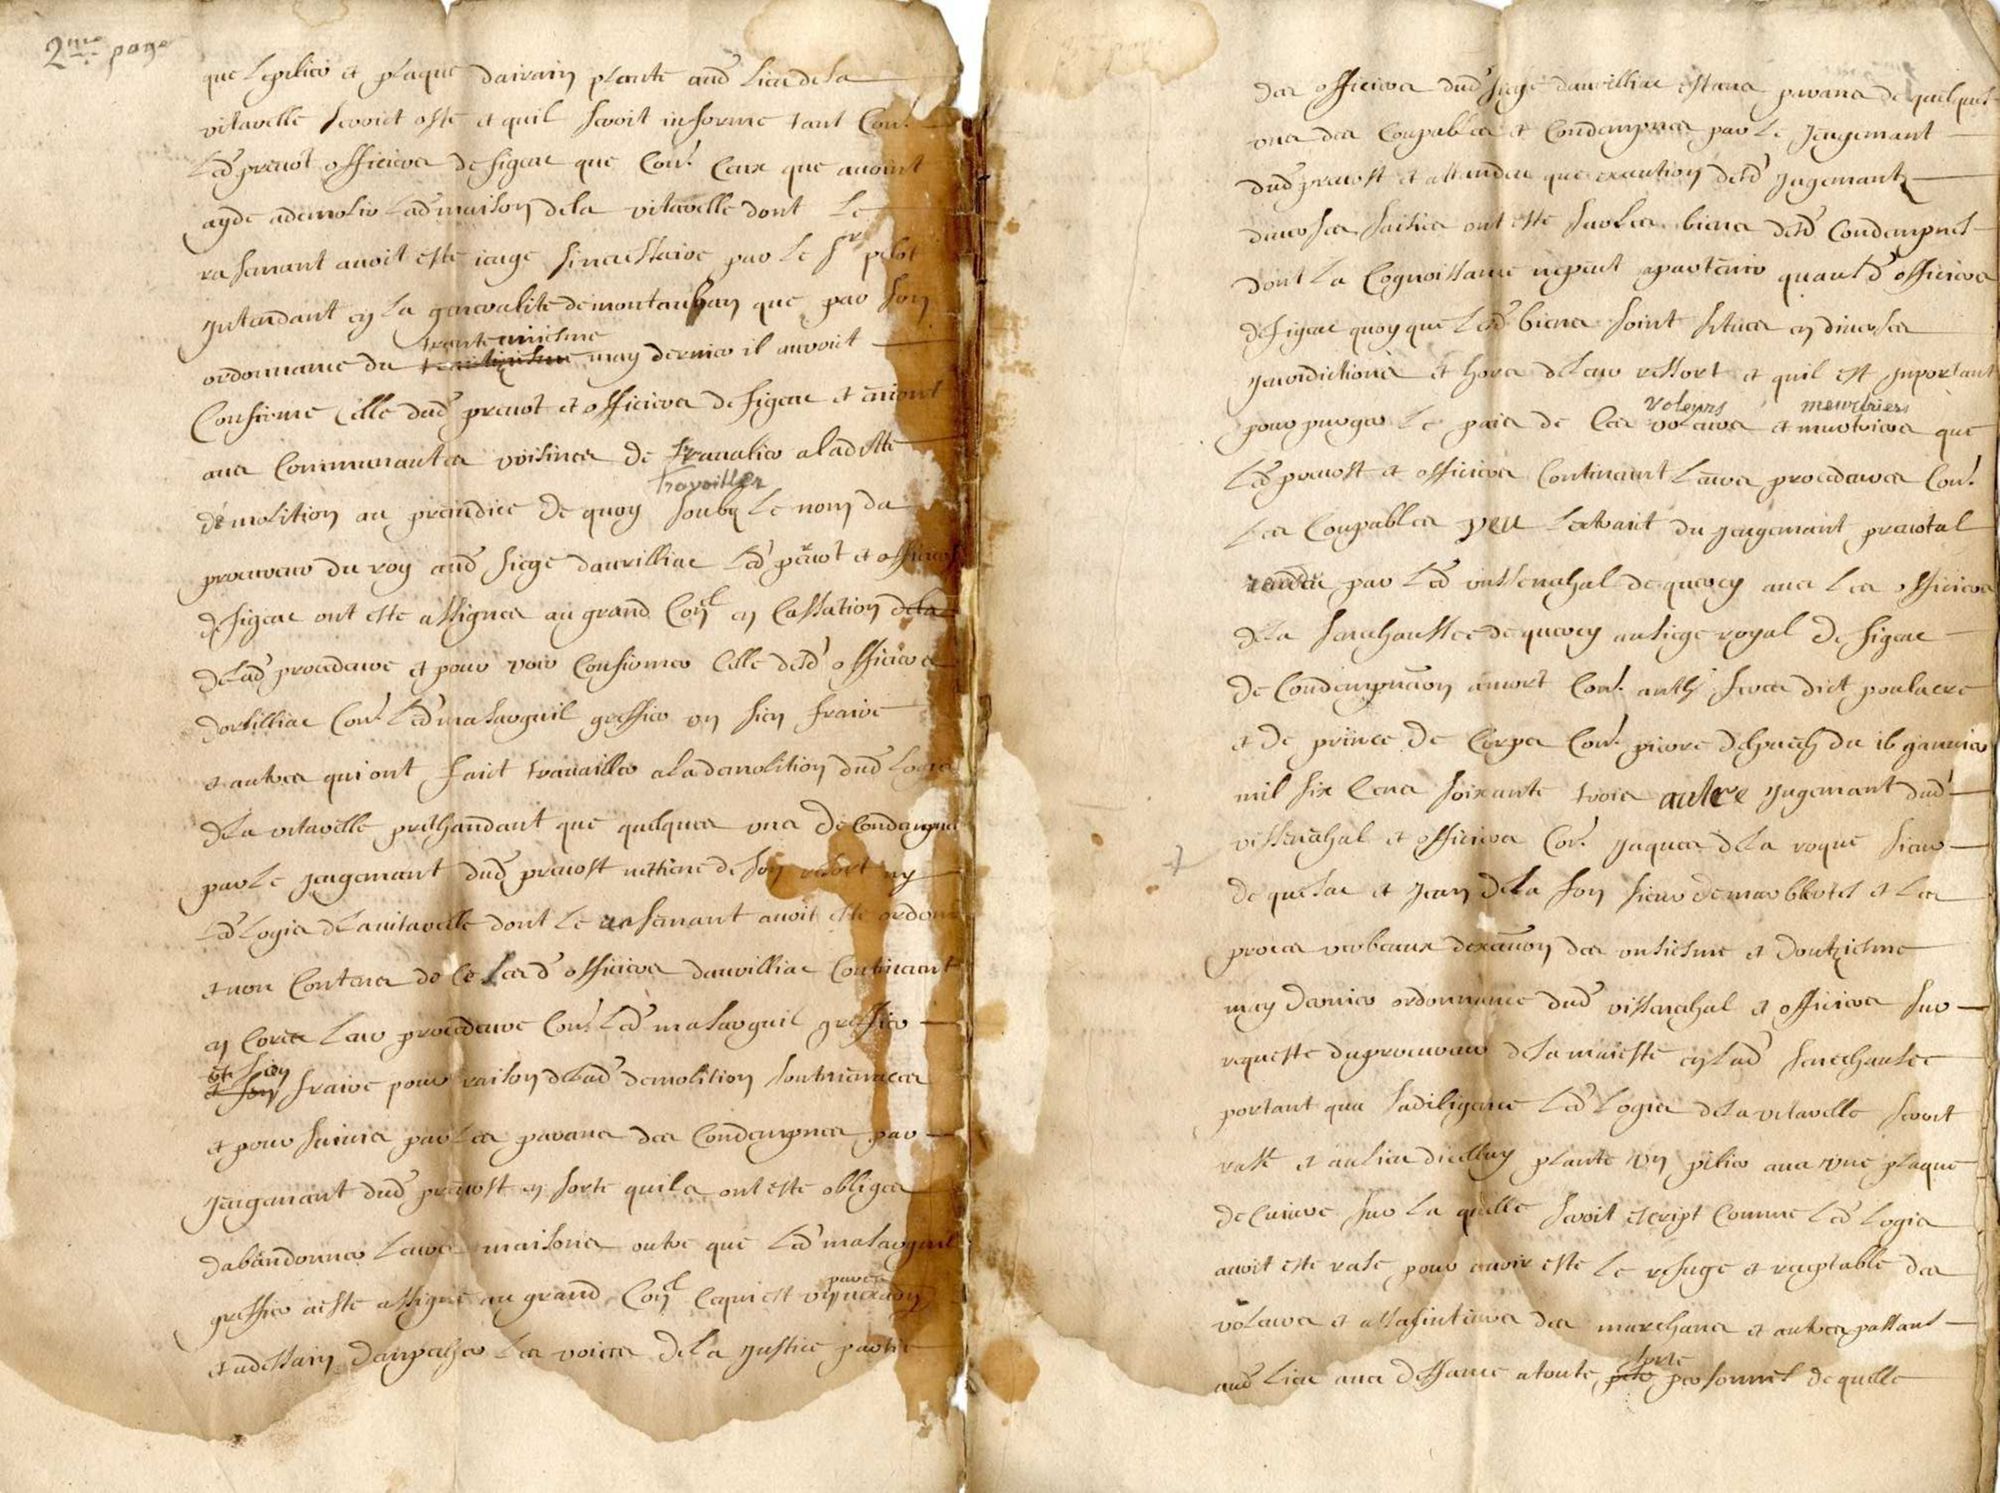 2me page
que le pilier et plaque dairain plante aud lieu de la
vitarelle seroict oste et quil seroit informe tant Con.
led prevot officiers de figeac que Con. Ceux que avoint
ayde a demolir lad maison dela vitarelle dont le
rasemant avoit este juge par le sr pelot
Intendant en la generalite de montauban que par son
trante uniesme
ordonnance du may dernier il auroit
Confirme celle dud prevot et officiers de figeac et enjoint
aux Communautes voisines de travalier a ladite
travailler
demolition au prejudice de quoy soubz le nom du
procureur du roy aud siege daurilliac led prevot et officiers
de figeac ont este assignes au grand Conl en Cassation dela
delad procedeure et pour voir Confirmer Celle desd officiers
dorilliac Con. led malarguil greffier un sien fraire
et autres qui ont fait travailler a la demolition dud logis
dela vitarelle prethandant que quelques uns de Condempnes
par le jeugemant dud prevost de son resort ny
led logis de la vitarelle dont le rasemant avoit este ordone
et non Contans de Ce lesd officiers daurilliac Continuent
en Cores leur procedeure Con. led malarguil greffier
un sien
et son fraire pour raison delad demolition sont menaces
et pour suivis par les parans des Condempnes par
jeugemant dud prevost en sorte quils ont este obliges
dabandonner leurs maisons outre que led malarguil
greffier a este assigne au grand Conl Ce qui est
et a dessain danpecher les voies de la justice partie
des officiers dud siege daurilliac estans parans de quelques
uns des Coupables et Condempnes par le jeugemant
dud prevost et attandeu que execution desd jugemants
diverses saisies ont este sur les biens desd Condempnes
dont la Cognoissance ne peut apartenir quausd officiers
de figeac quoy que lesd biens soint situes en diverses
jeuridictions et hors de leur ressort et quil est inportant
voleurs meurtriers
pour purger le pais de Ces voleurs et murtriers que
led prevost et officiers Continuent leurs procedeures Con.
les Coupables veu lextrait du jeugemant prevotal
randeu par led vissenechal de quercy aves les officiers
dela senechaussee de quercy au siege royal de figeac
de Condempnaon a mort Con. anth serres dict poulacre
et de prinse de Corps Con. pierre delpuech du 16 janvier
mil six Cens soixante trois autre jugemant dud
vissenechal et officiers Con. Jaques dela roque sieur
de quesac et Jean dela fon sieur de et les
proces verbeaux dexecution des onsiesme et doutziesme
may dernier ordonnance dud vissenechal et officiers sur
requeste du procureur de sa majeste en lad senechausee
portant qua sa diligence led logis dela vitarelle seroit
rase et au lieu dicelluy plante un pilier aves une plaque
de Cuivre sur la quelle seroit escript Comme led logis
avoit este rase pour avoir este le refuge et receptable des
voleurs et assasinateurs des marchans et autres passant
sorte
aud lieu aves deffance a toute personnes de quelle